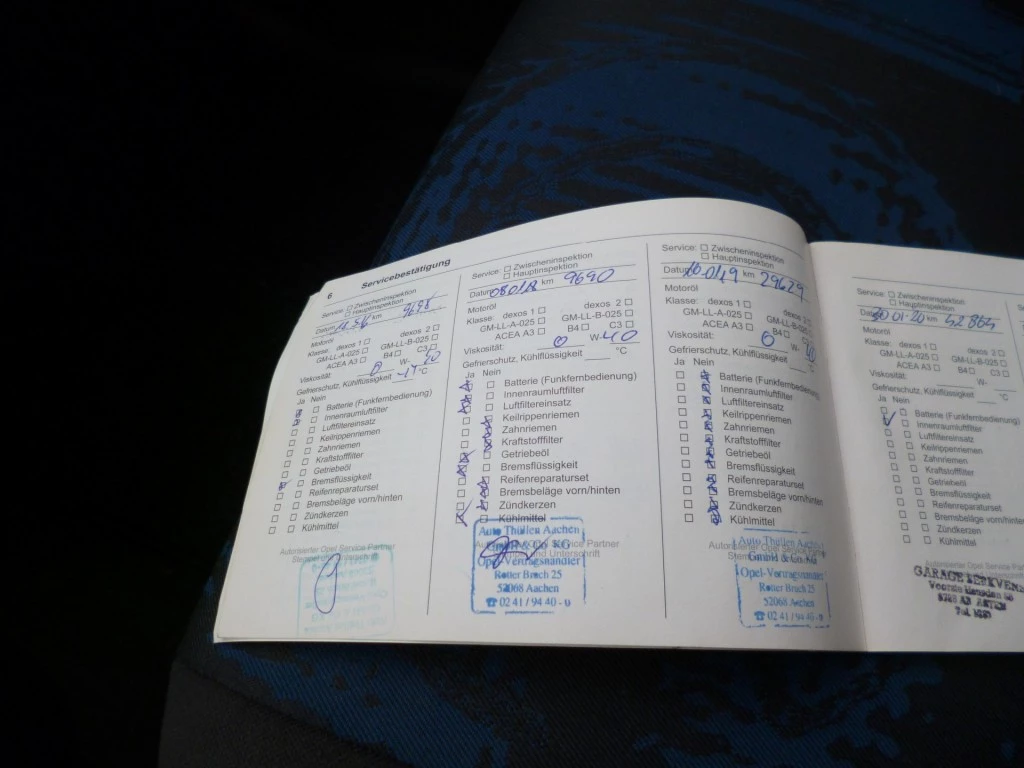 6 Servicebestätigung
Service: □ Zwischeninspektion
□ Hauptinspektion
Datum km
Motoröl
Klasse: dexos 1 □ dexos 2 □
GM-LL-A-025 □ GM-LL-B-025 □
ACEA A3 □ B4 □ C3 □
Viskosität: 0 W-
Gefrierschutz, Kühlflüssigkeit °C
Ja Nein
□ Batterie (Funkfernbedienung)
□ Innenraumluftfilter
□ □ Luftfiltereinsatz
□ □ Keilrippenriemen
□ □ Zahnriemen
□ □ Kraftstofffilter
□ □ Getriebeöl
□ Bremsflüssigkeit
□ □ Reifenreparaturset
□ □ Bremsbeläge vorn/hinten
□ □ Zündkerzen
□ □ Kühlmittel
Autorisierter Opel Service Partner
Service: □ Zwischeninspektion
□ Hauptinspektion
Datum 0801 km 9690
Motoröl
Klasse: dexos 1 □ dexos 2 □
GM-LL-A-025 □ GM-LL-B-025 □
ACEA A3 □ B4 □ C3 □
Viskosität: 0 W-40
Gefrierschutz, Kühlflüssigkeit °C
Ja Nein
Batterie (Funkfernbedienung)
Innenraumluftfilter
Luftfiltereinsatz
Keilrippenriemen
Zahnriemen
Kraftstofffilter
Getriebeöl
Bremsflüssigkeit
Reifenreparaturset
Bremsbeläge vorn/hinten
Zündkerzen
Kühlmittel
Auto Thüllen Aachen
GmbH & Co KG
Opel-Vertragshändler
Rotter Bruch 25
52068 Aachen
☎ 02 41 / 94 40 - 0
Service: □ Zwischeninspektion
□ Hauptinspektion
Datum 10.01.19 km 29629
Motoröl
Klasse: dexos 1 □
GM-LL-A-025 □ GM-LL-B-025
ACEA A3 □ B4 □
Viskosität: 0 W-
Gefrierschutz, Kühlflüssigkeit °C
Ja Nein
Batterie (Funkfernbedienung)
Innenraumluftfilter
Luftfiltereinsatz
Keilrippenriemen
Zahnriemen
Kraftstofffilter
Getriebeöl
Bremsflüssigkeit
Reifenreparaturset
Bremsbeläge vorn/hinten
Zündkerzen
Kühlmittel
Autorisierter Opel Service
Auto Thüllen Aachen
GmbH & Co KG
Opel-Vertragshändler
Rotter Bruch 25
52068 Aachen
☎ 02 41 / 94 40 - 0
Service: □ Zwischeninspektion
□ Hauptinspektion
Datum 30 01-20 km 42864
Motoröl
Klasse: dexos 1 □ dexos 2 □
GM-LL-A-025 □ GM-LL-B-025 □
ACEA A3 □ B4 □ C3 □
Viskosität: W-
Gefrierschutz, Kühlflüssigkeit °C
Ja Nein
□ Batterie (Funkfernbedienung)
□ Innenraumluftfilter
□ □ Luftfiltereinsatz
□ □ Keilrippenriemen
□ □ Zahnriemen
□ □ Kraftstofffilter
□ □ Getriebeöl
□ □ Bremsflüssigkeit
□ □ Reifenreparaturset
□ □ Bremsbeläge vorn/hinten
□ □ Zündkerzen
□ □ Kühlmittel
Autorisierter Opel Service
GARAGE